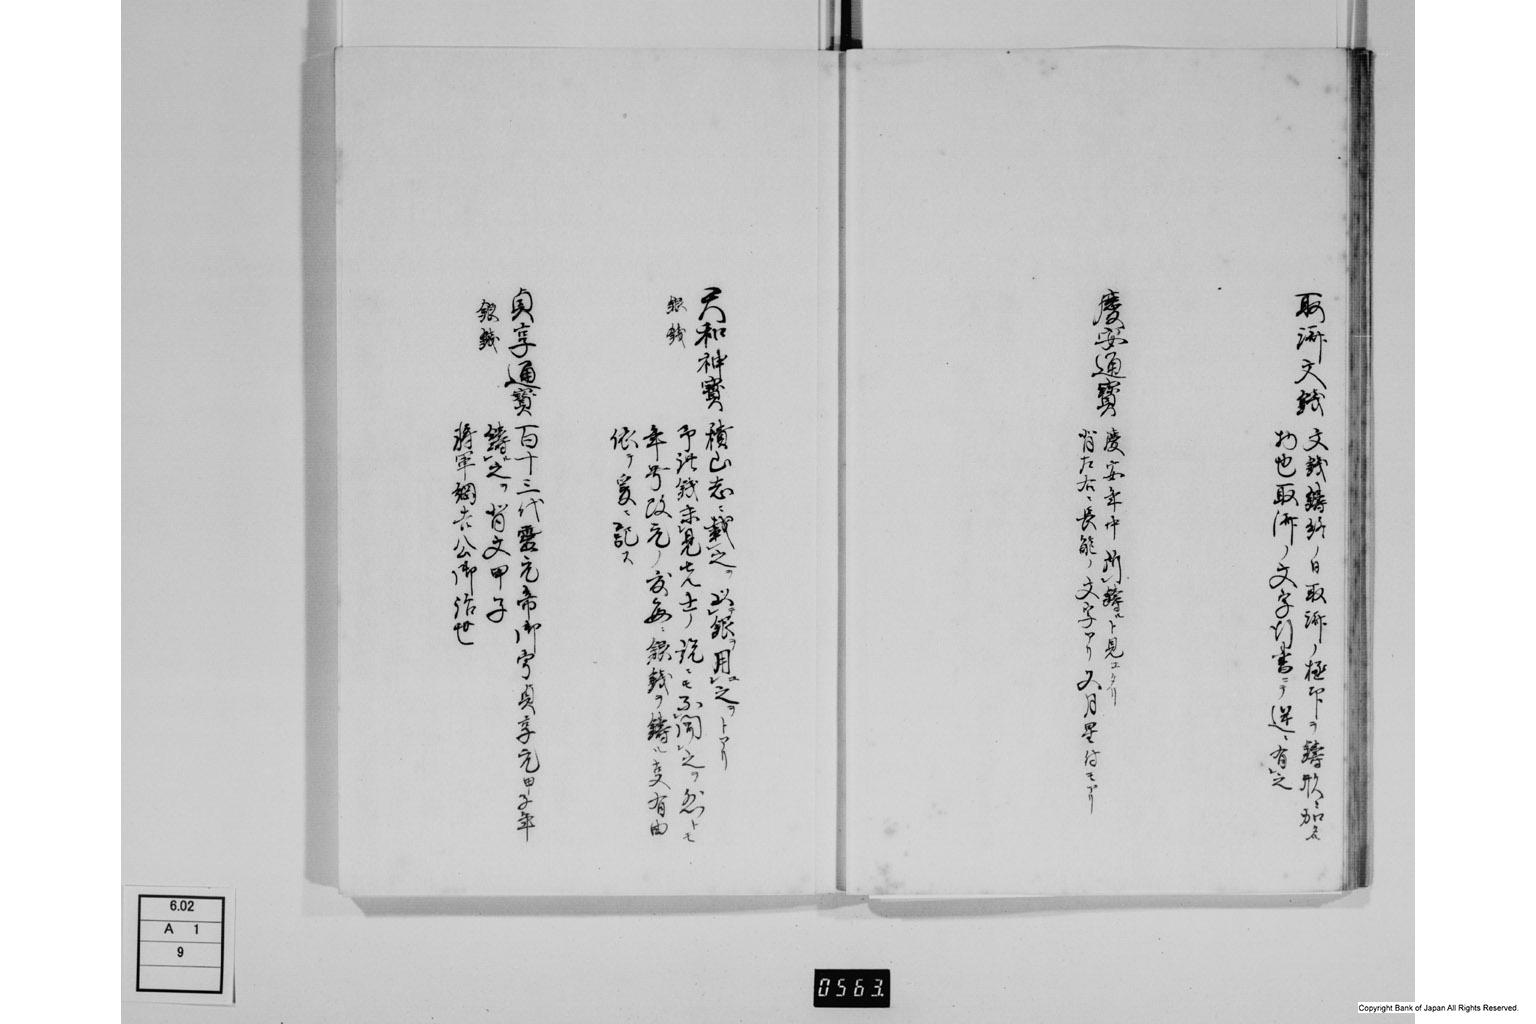 取済文銭
文銭鋳終ノ日取済ノ極印ヲ鋳形ニ加たる
物也取済ノ文字行書ニテ逆ニ有之
慶安通寳
慶安年中所鋳ルト見エタリ
背左右ニ長能ノ文字アリ又月星付モアリ
天和神寳
銀銭
積山志ニ載之ヲ以銀ヲ用之ヲトアリ
予此銭未見先士ノ説ニモ不聞之ヲ然トモ
年号改元ノ度毎ニ銀銭ヲ鋳ル支有由
依テ爰ニ記ス
貞享通寳
銀銭
百十三代霊元帝御宇貞享元甲子年
鋳之ヲ背文甲子
将軍綱吉公御治世
6.02
A 1
9
0563
Copyright Bank of Japan All Rights Reserved.